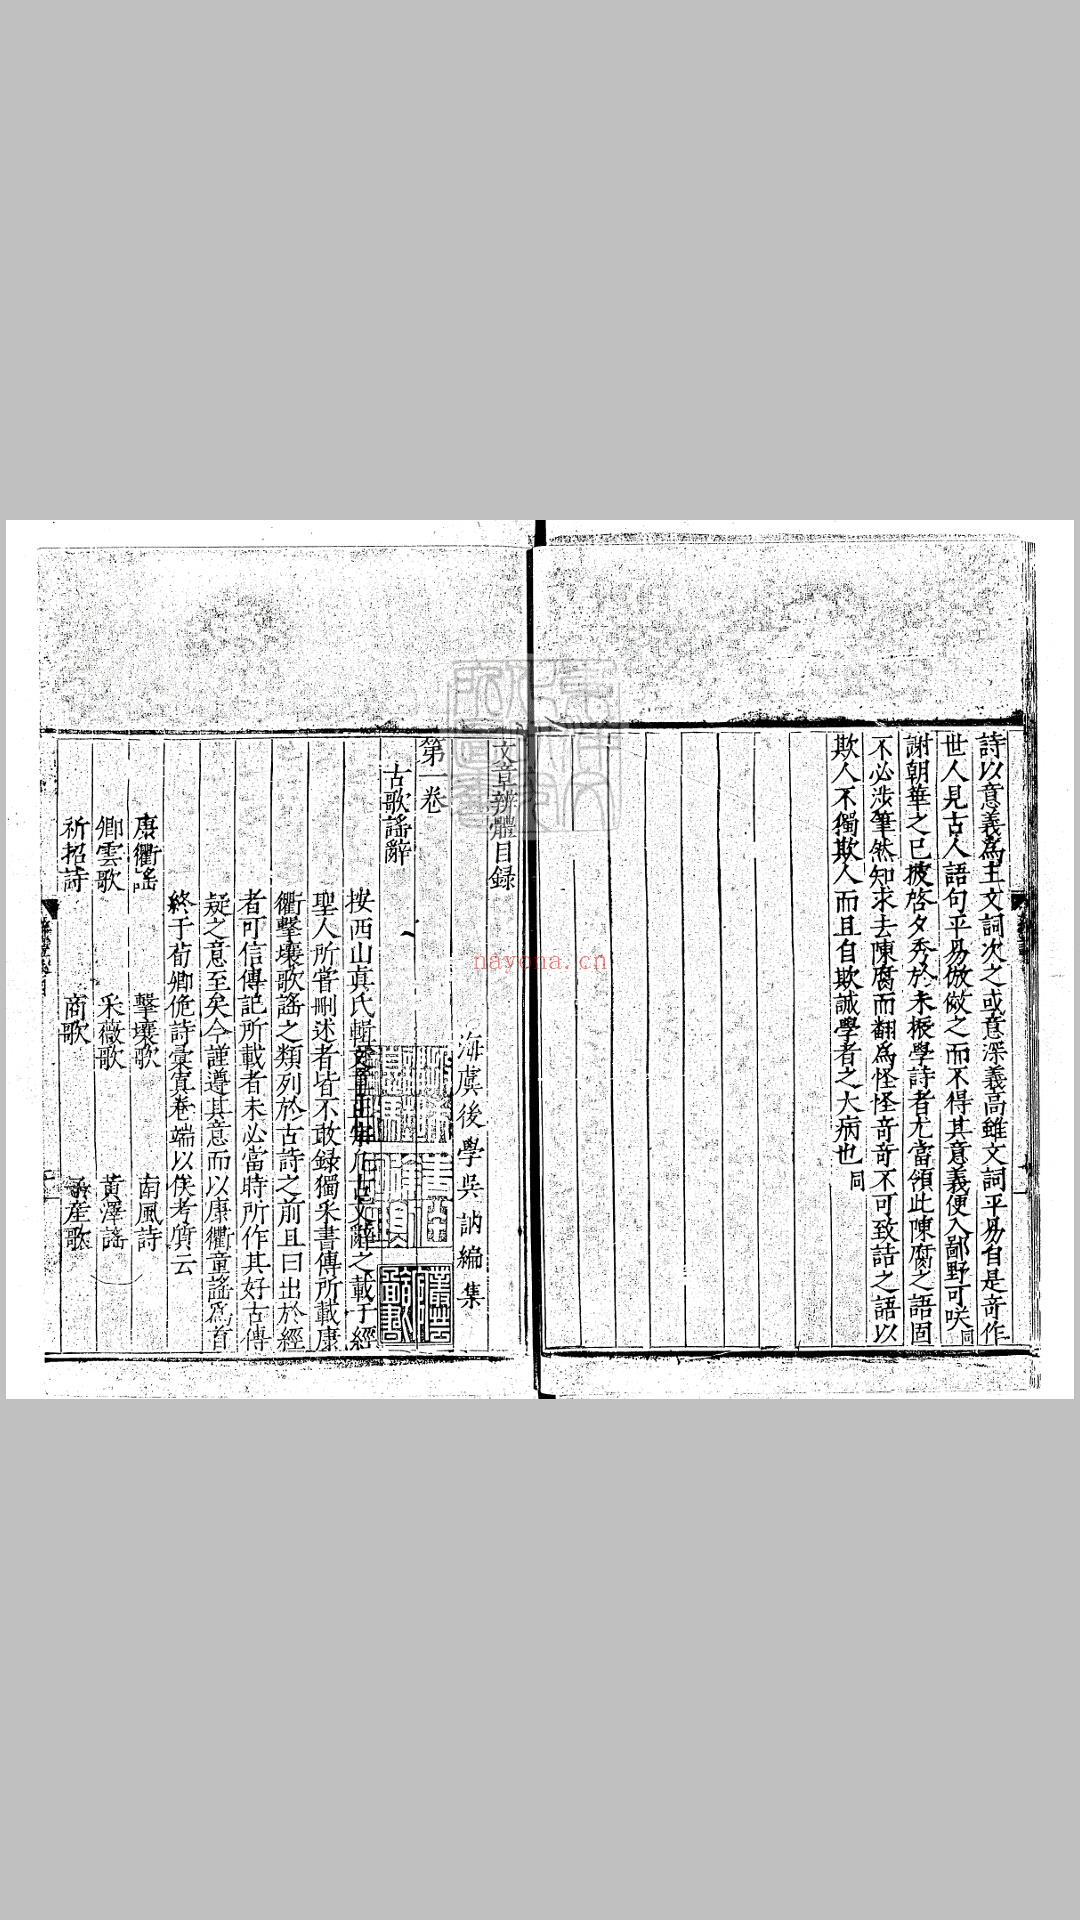 詩以意義爲主文詞次之或意深義高雖文詞平易自是奇作
世人見古人語句平易倣效之而不得其意義便入鄙野可咲同
謝朝華之已披啓夕秀於未振學詩者尤當領此陳腐之語固
不必涉筆然知求去陳腐而翻爲怪怪奇奇不可致詰之語以
欺人不獨欺人而且自欺誠學者之大病也同
文章辨體目録
海虞後學吳訥編集
第一卷
古歌謠辭
按西山真氏輯文章正宗凡古文辭之載于經
聖人所嘗刪述者皆不敢録獨采書傳所載康
衢擊壤歌謠之類列於古詩之前且曰出於經
者可信傳記所載者未必當時所作其好古傳
疑之意至矣今謹遵其意而以康衢童謠爲首
終于荀卿佹詩彙寘卷端以俟考質云
康衢謠 擊壤歌 南風詩
卿雲歌 采薇歌 黃澤謠
祈招詩 商歌 産歌
nayona.cn